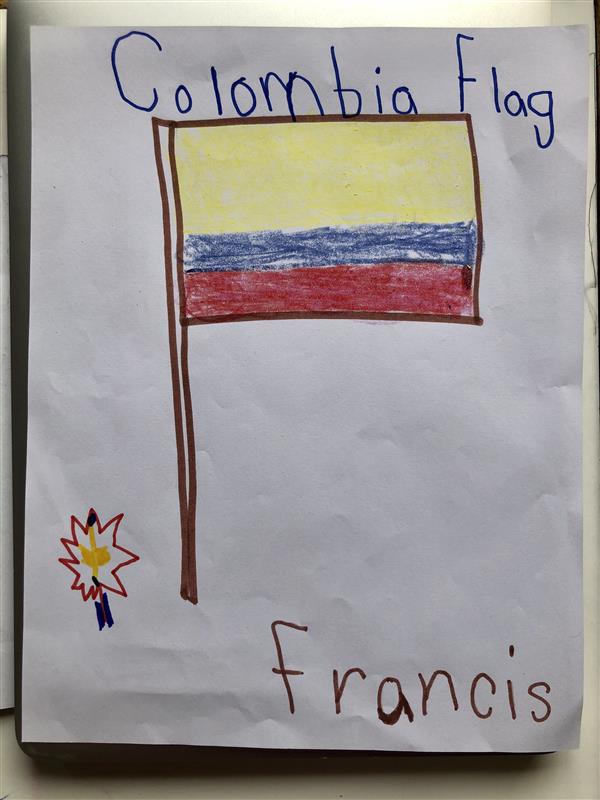 Colombia Flag
Francis